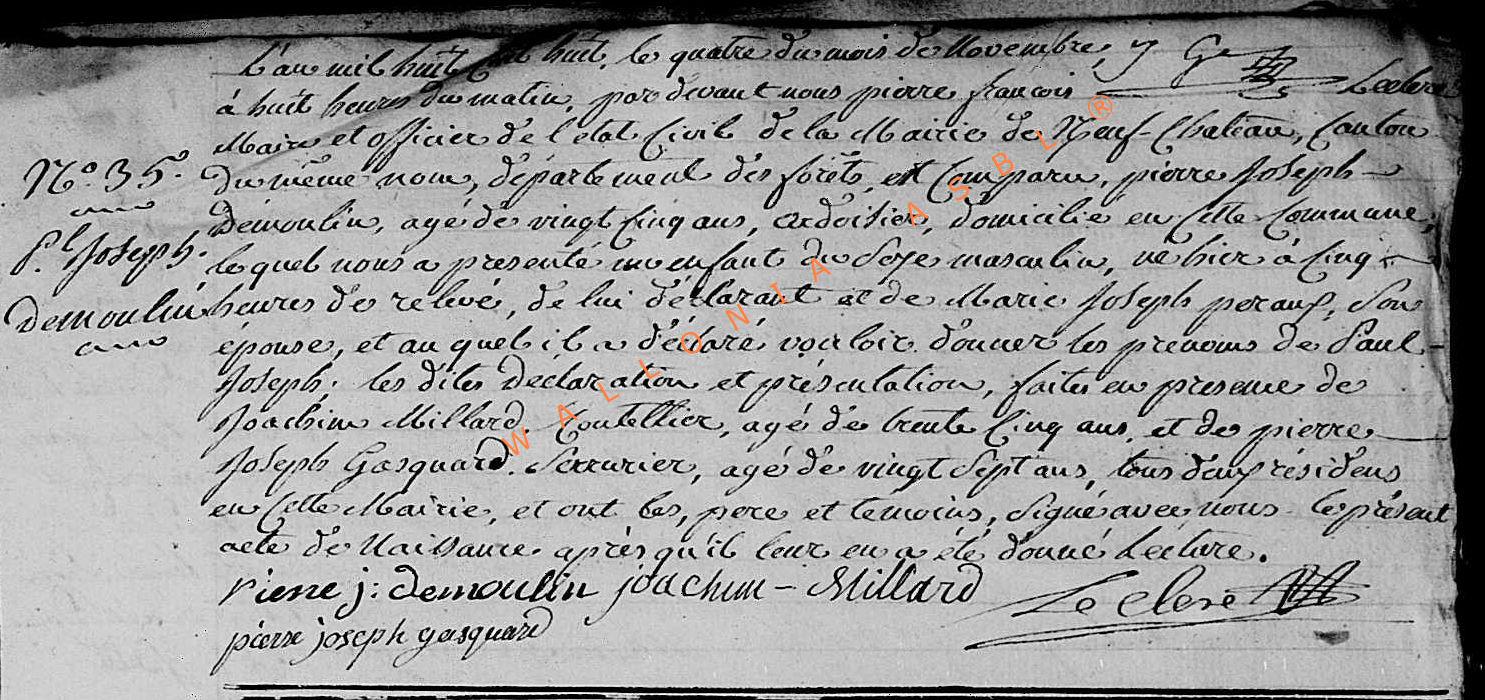 L'an mil huit cent huit, le quatre du mois de Novembre,
à huit heures du matin, par devant nous pierre françois Leclere
Maire et officier de l'état Civil de la Mairie de Neuf-Chateau, Canton
du même nom, département des forêts, est Comparu, pierre Joseph
Demoulin, agé de vingt Cinq ans, ardoisier, domicilié en Cette Commune,
lequel nous a presenté un enfant du Sexe masculin, né hier à Cinq
heures de relevé, de lui déclarant et de Marie Joseph peraux, Son
épouse, et au quel il a déclaré vouloir donner les prenoms de Paul-
Joseph; les dites Déclaration et présentation, faites en presence de
Joachim Millard. Coutellier, agé de trente Cinq ans, et de pierre
Joseph Gasquard. Serrurier, agé de vingt Sept ans, tous deux résidens
en Cette Mairie, et ont les, pere et temoins, Signé avec nous le présent
acte de Naissance après qu'il leur en a été donné Lecture.
Pierre j: demoulin joachim - Millard
Le clere
pierre joseph gasquard
N.o 35.
P.l Joseph.
Demoulin
WALLONIA ASBL ®